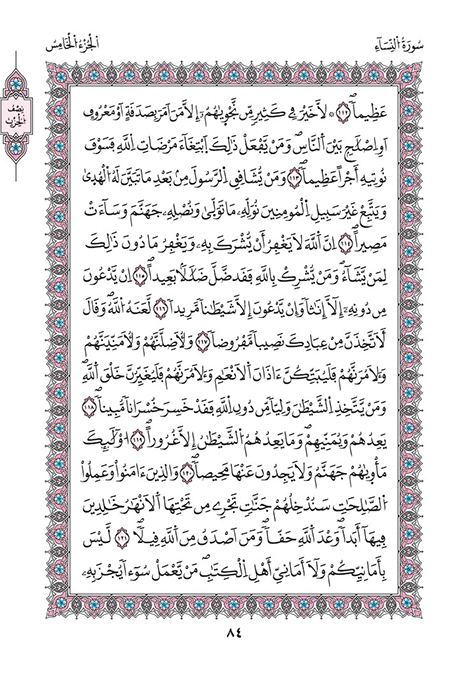 سُورَةُ النِّسَاءِ
الْجُزْءُ الْخَامِسُ
نِصْف
الْحِزْب
عَظِيماً ١١٢ ۞ لَّا خَيْرَ فِي كَثِيرٍ مِّن نَّجْوٜيٰهُمُۥٓ إِلَّا مَنَ اَمَرَ بِصَدَقَةٍ اَوْ مَعْرُوفٍ
اَوِ اِصْلَٰحِۢ بَيْنَ اَ۬لنَّاسِۖ وَمَنْ يَّفْعَلْ ذَٰلِكَ اَ۪بْتِغَآءَ مَرْضَاتِ اِ۬للَّهِ فَسَوْفَ
نُوتِيهِ أَجْراً عَظِيماً ١١٣ وَمَنْ يُّشَاقِقِ اِ۬لرَّسُولَ مِنۢ بَعْدِ مَا تَبَيَّنَ لَهُ اُ۬لْهُد۪يٰ
وَيَتَّبِعْ غَيْرَ سَبِيلِ اِ۬لْمُومِنِينَ نُوَلِّهِۦ مَا تَوَلّ۪يٰ وَنُصْلِهِۦ جَهَنَّمَ وَسَآءَتْ
مَصِيراًۖ ١١٤ اِنَّ اَ۬للَّهَ لَا يَغْفِرُ أَنْ يُّشْرَكَ بِهِۦ وَيَغْفِرُ مَا دُونَ ذَٰلِكَ
لِمَنْ يَّشَآءُۖ وَمَنْ يُّشْرِكْ بِاللَّهِ فَقَد ضَّلَّ ضَلَٰلاَۢ بَعِيداًۖ ١١٥ اِنْ يَّدْعُونَ
مِن دُونِهِۦٓ إِلَّآ إِنَٰثاً وَإِنْ يَّدْعُونَ إِلَّا شَيْطَٰناً مَّرِيداً ١١٦ لَّعَنَهُ اُ۬للَّهُۖ وَقَالَ
لَأَتَّخِذَنَّ مِنْ عِبَادِكَ نَصِيباً مَّفْرُوضاً ١١٧ وَلَأُضِلَّنَّهُمْ وَلَأُمَنِّيَنَّهُمْ
وَءَلَامُرَنَّهُمْ فَلَيُبَتِّكُنَّ ءَاذَانَ اَ۬لَانْعَٰمِ وَءَلَامُرَنَّهُمْ فَلَيُغَيِّرُنَّ خَلْقَ اَ۬للَّهِۖ
وَمَنْ يَّتَّخِذِ اِ۬لشَّيْطَٰنَ وَلِيّاً مِّن دُونِ اِ۬للَّهِ فَقَدْ خَسِرَ خُسْرَاناً مُّبِيناًۖ ١١٨
يَعِدُهُمْ وَيُمَنِّيهِمْۖ وَمَا يَعِدُهُمُ اُ۬لشَّيْطَٰنُ إِلَّا غُرُوراًۖ ١١٩ اُوْلَٰٓئِكَ
مَأْو۪يٰهُمْ جَهَنَّمُ وَلَا يَجِدُونَ عَنْهَا مَحِيصاًۖ ١٢٠ وَالذِينَ ءَامَنُواْ وَعَمِلُواْ
اُ۬لصَّٰلِحَٰتِ سَنُدْخِلُهُمْ جَنَّٰتٍ تَجْرِے مِن تَحْتِهَا اَ۬لَانْهَٰرُ خَٰلِدِينَ
فِيهَآ أَبَداًۖ وَعْدَ اَ۬للَّهِ حَقّاًۖ وَمَنَ اَصْدَقُ مِنَ اَ۬للَّهِ قِيلاًۖ ١٢١ لَّيْسَ
بِأَمَانِيِّكُمْ وَلَآ أَمَانِيِّ أَهْلِ اِ۬لْكِتَٰبِۖ مَنْ يَّعْمَلْ سُوٓءاً يُجْزَ بِهِۦ
٨٤